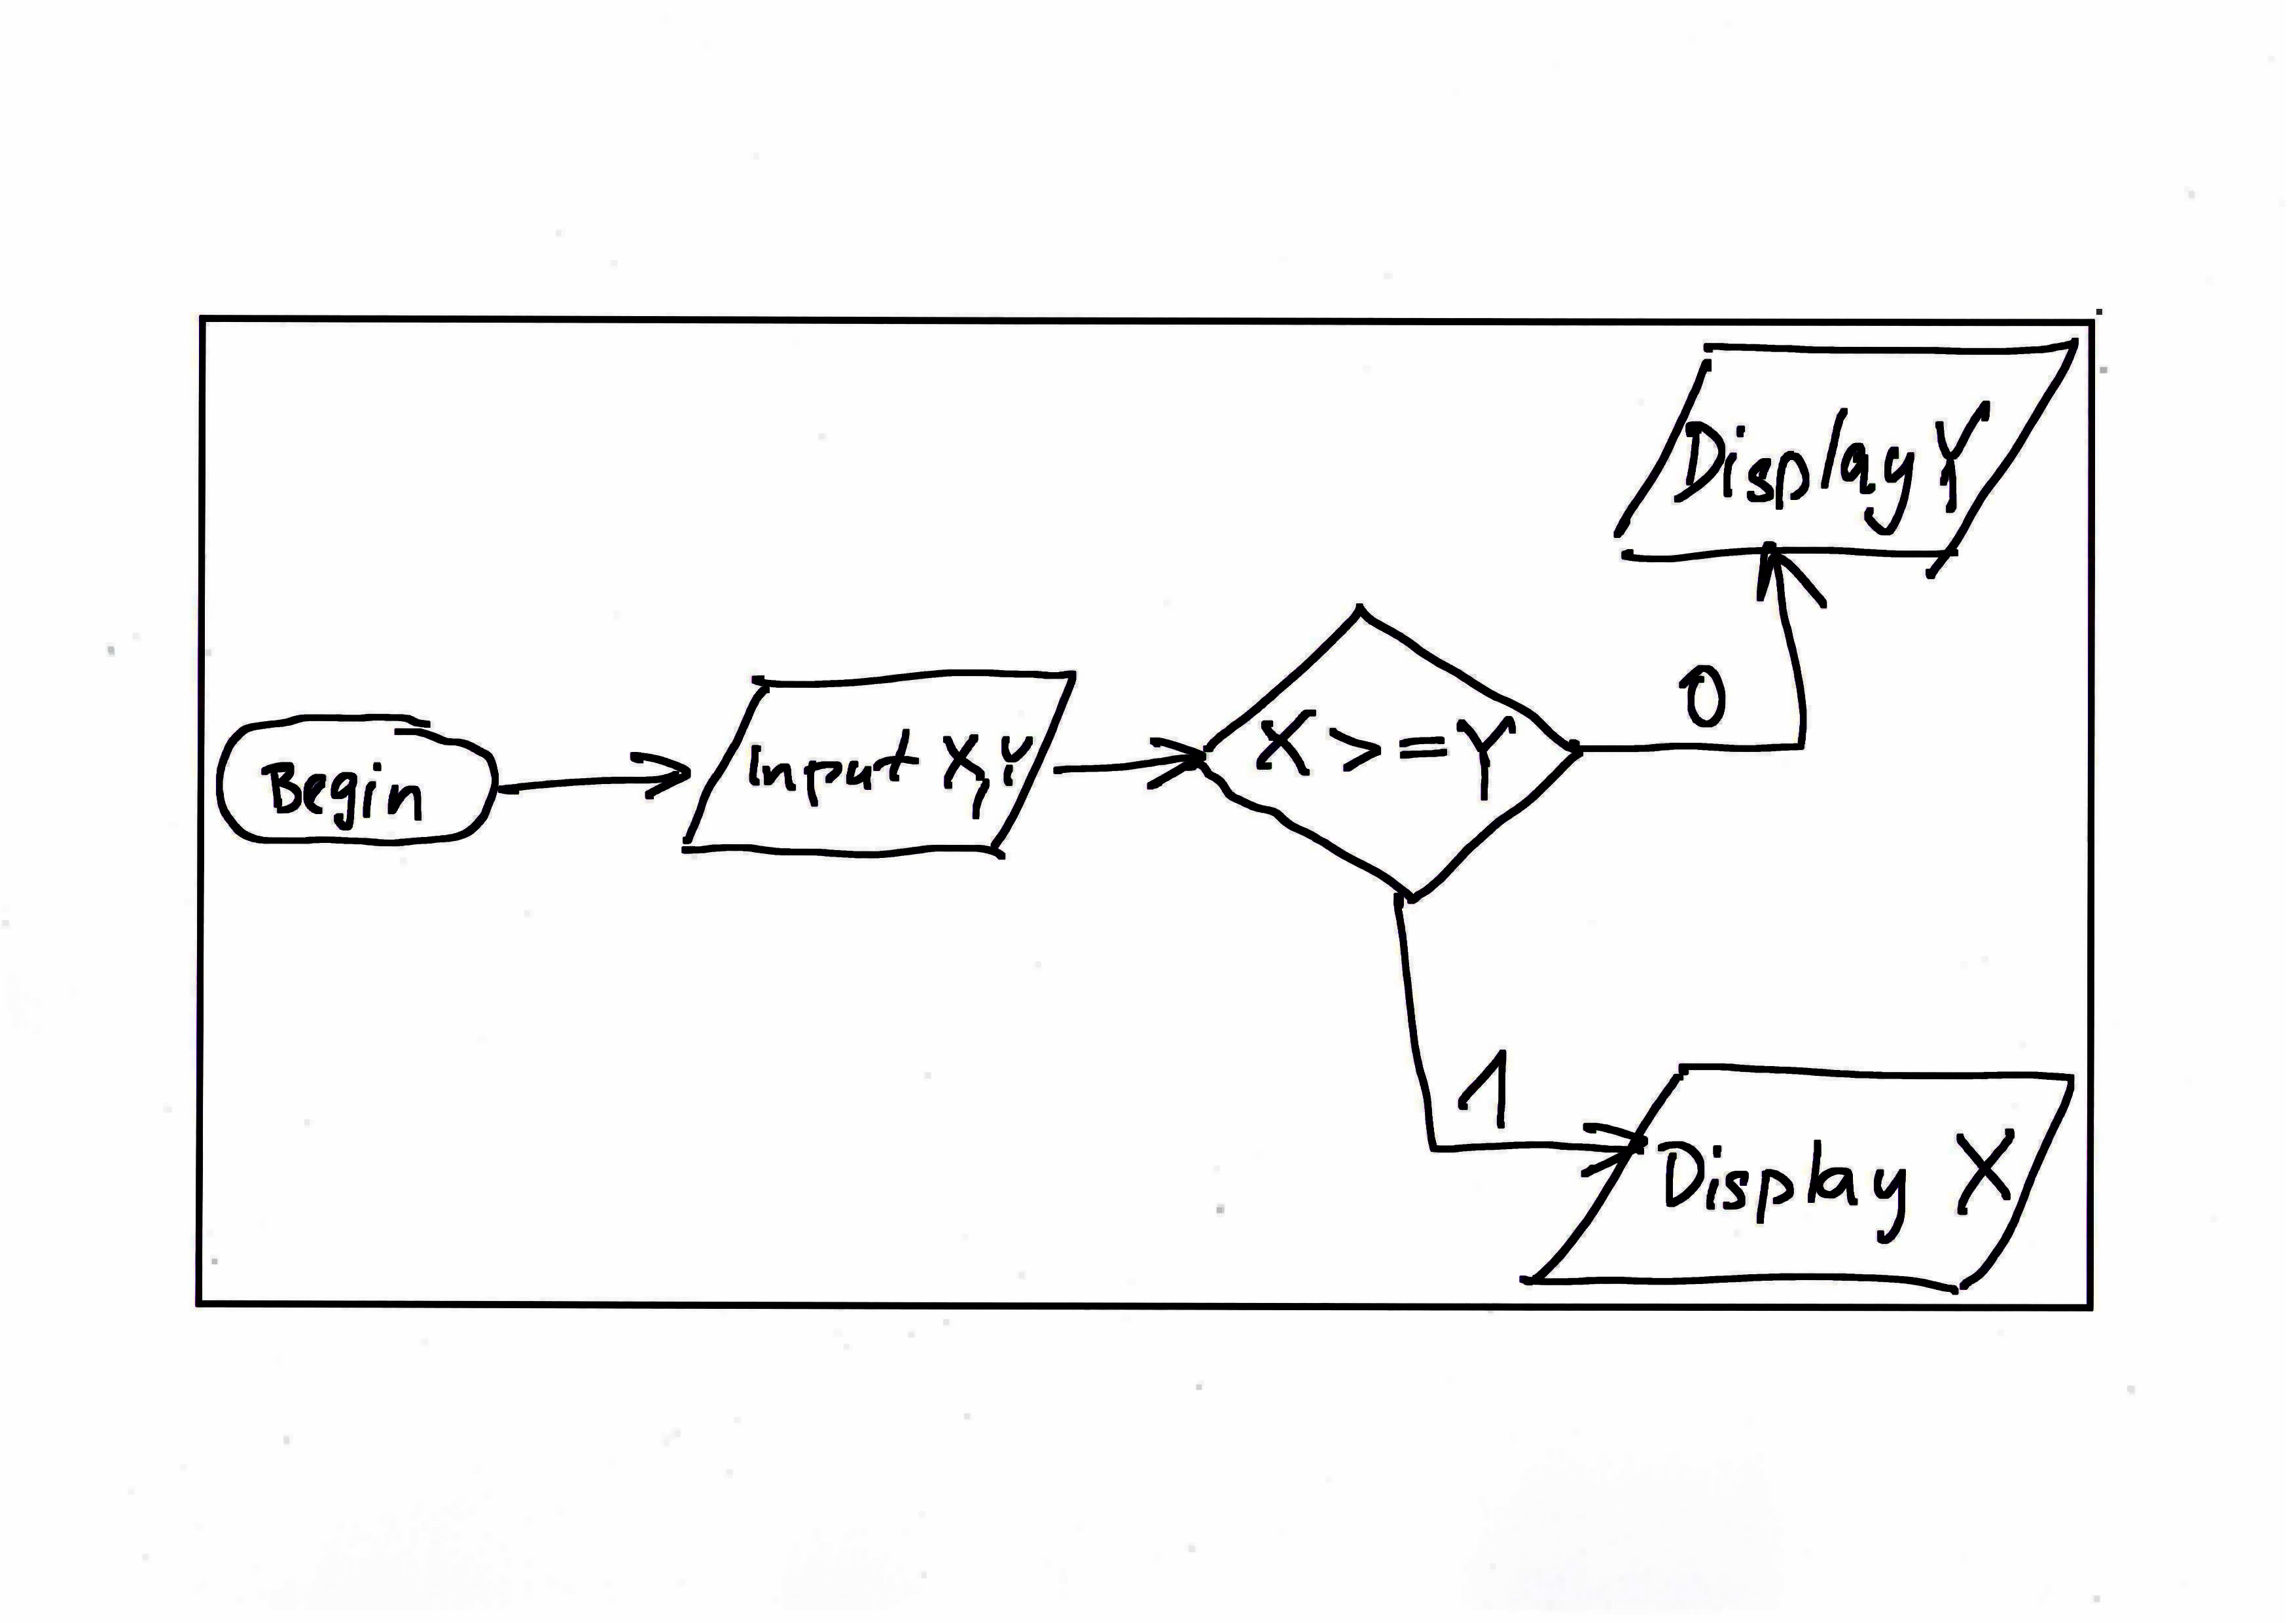 Begin
Input X,Y
X >= Y
0
Display Y
1
Display X